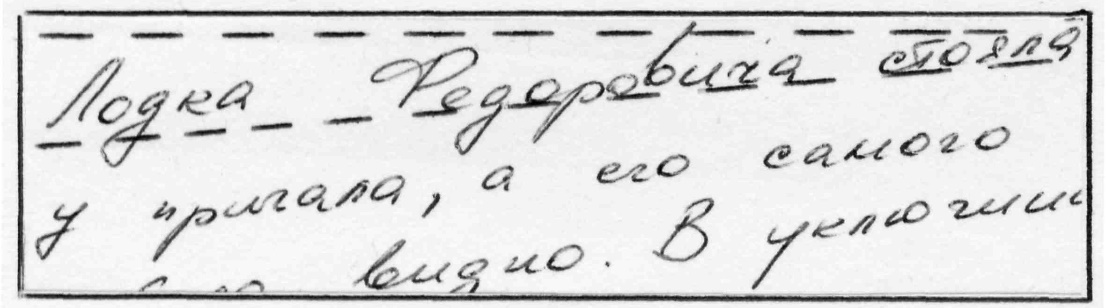 Лодка Федоровича стояла
у причала, а его самого
видно. В уключин